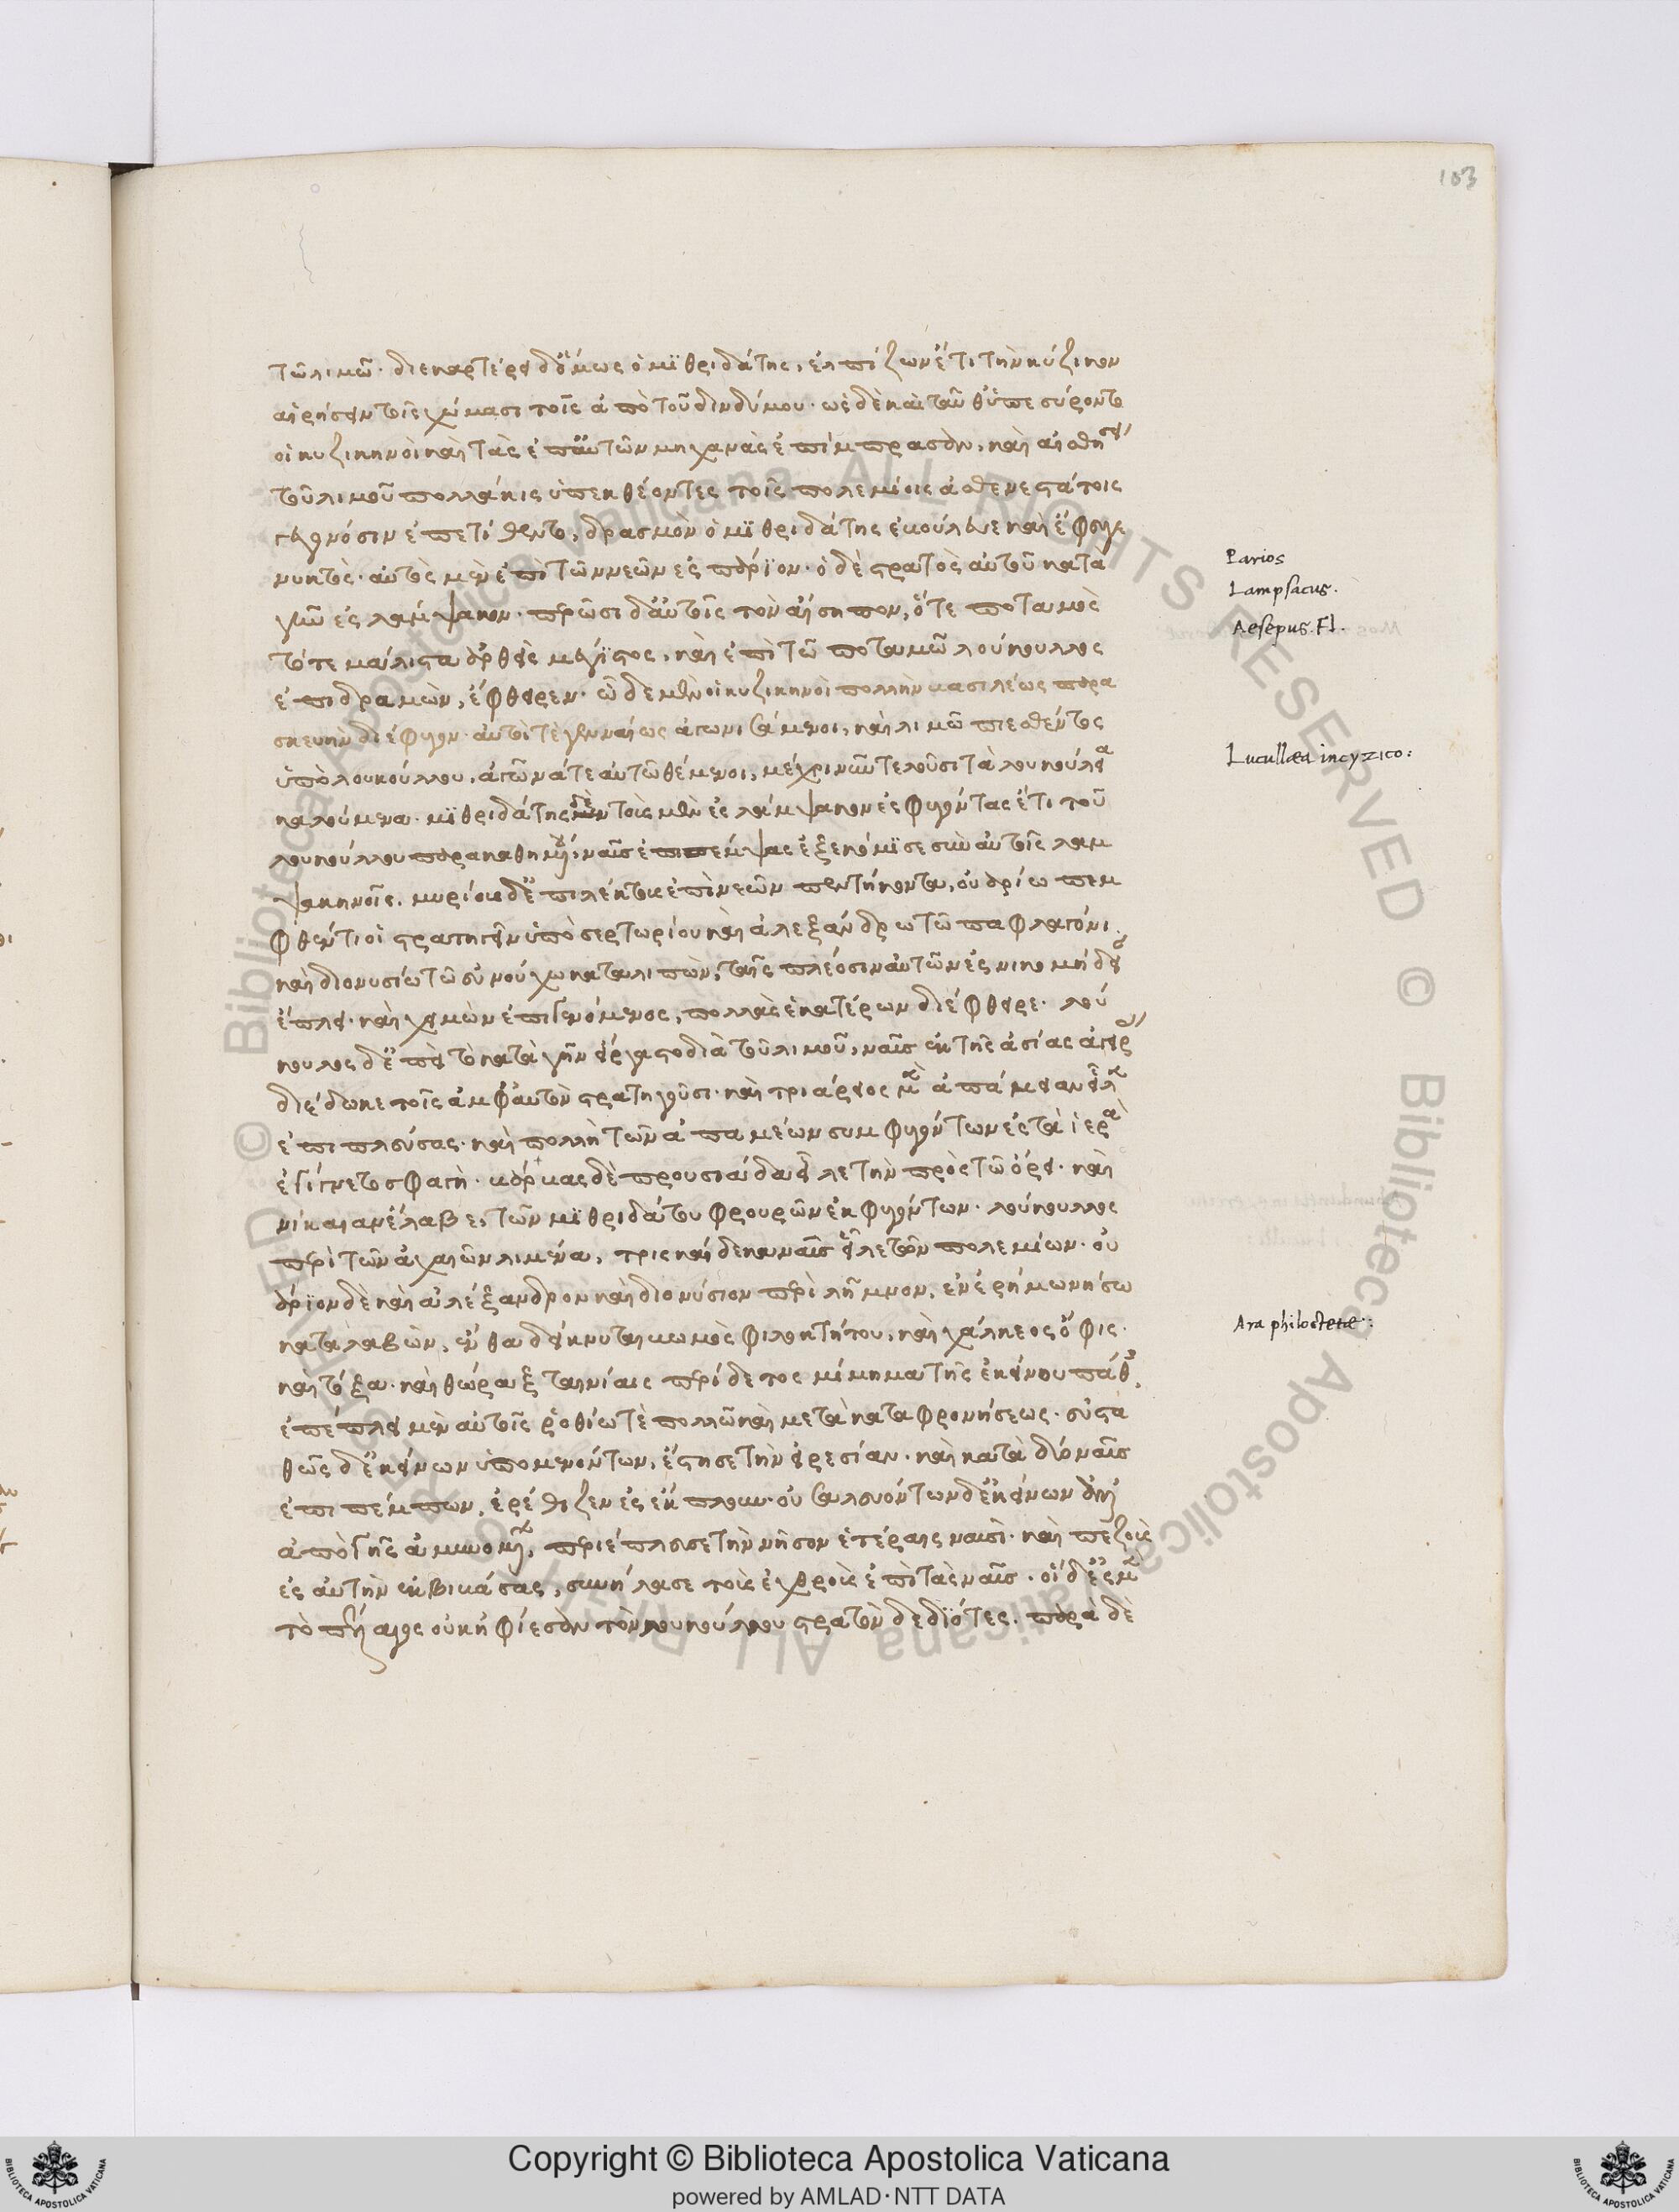 103
τῶ λιμῶ. διεκαρτέρει δ' ὅμως ὁ μϊθριδάτης, ἐλπίζων ἔτι τὴν κύζικον
αἱρήσειν τοῖς χώμασι τοῖς ἀπὸ τοῦ δινδύμου. ὡς δὲ καὶ ταῦθ' ὑπεσύροντο
οἱ κυζικηνοὶ καὶ τὰς ἐπ' αὐτῶν μηχανὰς ἐπίμπρασαν, καὶ αἰσθήσει
τοῦ λιμοῦ πολλάκις ὑπεκθέοντες τοῖς πολεμίοις ἀσθενεστάτοις
γεγονόσιν ἐπετίθεντο, δρασμὸν ὁ μϊθριδάτης ἐβούλευε καὶ ἔφευγε
νυκτὸς. αὐτὸς μὲν ἐπὶ τῶν νεῶν ἐς πάρϊον. ὁ δὲ στρατὸς αὐτοῦ κατὰ
γῆν ἐς λάμψακον. περῶσι δ' αὐτοῖς τὸν αἴσηπον, ὅτε ποταμὸς
τότε μάλιστα ἀρθεὶς μέγϊστος, καὶ ἐπὶ τῶ ποταμῶ λούκουλλος
ἐπιδραμὼν, ἔφθειρεν. ὧδε μὲν οἱ κυζικηνοὶ πολλὴν βασιλέως παρα
σκευὴν διέφυγον. αὐτοί τε γενναίως ἀγωνισάμενοι, καὶ λιμῶ πιεσθέντος
ὑπὸ λουκούλλου, ἀγῶνά τε αὐτῶ θέμενοι, μέχρι νῦν τελοῦσι τὰ λουκούλλεια
καλούμενα. μϊθριδάτης δὲ τοῖς μὲν ἐς λάμψακον ἐσφυγόντας ἔτι τοῦ
λουκούλλου παρακαθημένου, ναῦς ἐπιπέμψας ἐξεκόμϊσε σὺν αὐτοῖς λαμ
ψακηνοῖς. μυρίους δ' ἐπιλέκτους ἐπὶ νεῶν πεντήκοντα, οὐαρίω πεμ
φθέντι οἱ στρατηγεῖν ὑπὸ σερτωρίου καὶ ἀλεξάνδρω τῶ παφλαγόνι.
καὶ διονυσίω τῶ εὐνούχω καταλιπὼν, ταῖς πλέοσιν αὐτῶν ἐς νικομήδειαν
ἔπλει. καὶ χειμὼν ἐπιγενόμενος, πολλὰς ἑκατέρων διέφθειρε. λού
κουλος δ' ἐπεὶ τὸ κατὰ γῆν εἴργαστο διὰ τοῦ λιμοῦ, ναῦς ἐκ τῆς ἀσίας ἀγείρας
διέδωκε τοῖς ἀμφ' αὐτὸν στρατηγοῦσι. καὶ τριάριος μὲν ἀπάμειαν εἷλεν
ἐπιπλεύσας. καὶ πολλὴ τῶν ἀπαμέων συμφυγόντων ἐς τὰ ἱερὰ
ἐγίγνετο σφαγὴ. βάρβας δὲ προυσιάδα εἷλε τὴν πρὸς τῶ ὄρει. καὶ
νίκαιαν ἔλαβε, τῶν μϊθριδάτου φρουρῶν ἐκφυγόντων. λούκουλλος
περὶ τῶν ἀχαιῶν λιμένα, τρισκαίδεκα ναῦς εἷλε τῶν πολεμίων. οὐ
άρϊον δὲ καὶ ἀλέξανδρον καὶ διονύσιον περὶ λῆμνον, ἐν ἐρήμω νήσω
καταλαβὼν, ἔνθα δείκνυται βωμὸς φιλοκτήτου, καὶ χάλκεος ὄφις.
καὶ τόξα. καὶ θώραξ ταινίαις περίδετος μίμημα τῆς ἐκείνου πάθης
ἐπέπλει μὲν αὐτοῖς ῥοθίω τὲ πολλῶ καὶ μετὰ καταφρονήσεως. εὐστα
θῶς δ' ἐκείνων ὑπομενόντων, ἔστησε τὴν εἰρεσίαν. καὶ κατὰ δύο ναῦς
ἐπιπέμπων, ἐρέθιζεν ἐς ἔκπλουν. οὐ σαλευόντων δ' ἐκείνων ἀλλ'
ἀπὸ γῆς ἀμυνομένων, περιέπλευσε τὴν νῆσον ἑτέραις ναυσὶ. καὶ πεζοὺς
ἐς αὐτὴν ἐκβιβάσας, συνήλασε τοὺς ἐχθροὺς ἐπὶ τὰς ναῦς. οἱ δ' ἐς μὲν
τὸ πέλαγος οὐκ ἠφίεσαν τὸν λουκούλλου στρατὸν δεδϊότες. παρὰ δὲ
Parios
Lampsacus.
Aesepus. Fl.
Lucullea in cyzico:
Ara philoctetae:
Copyright © Biblioteca Apostolica Vaticana
powered by AMLAD·NTT DATA